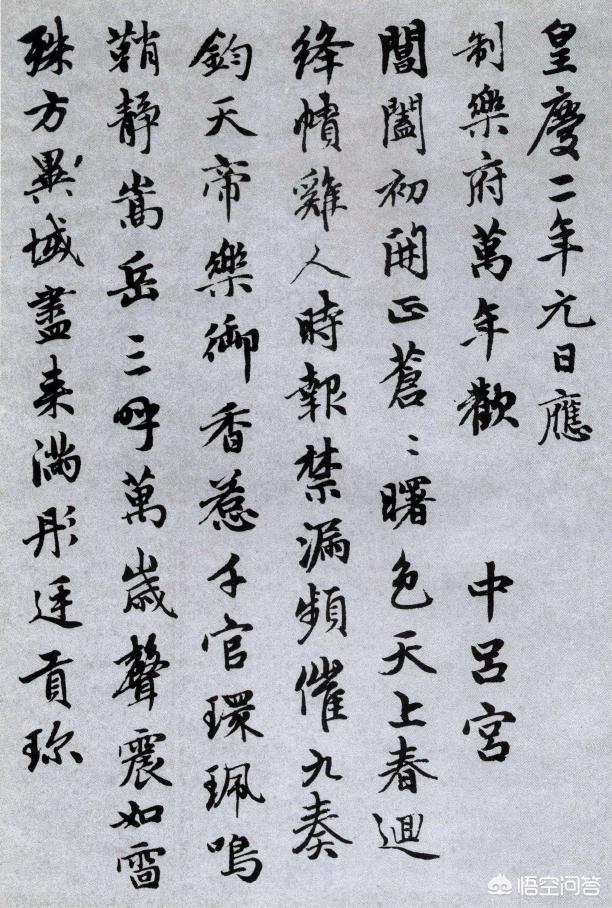 皇慶二年元日應
制樂府萬年歡 中呂宮
閶闔初開正蒼〻曙色天上春迴
絳幘雞人時報禁漏頻催九奏
鈞天帝樂御香惹千官環珮鳴
鞘靜嵩岳三呼萬歲聲震如雷
殊方異域盡来滿彤廷貢珎
悟空问答